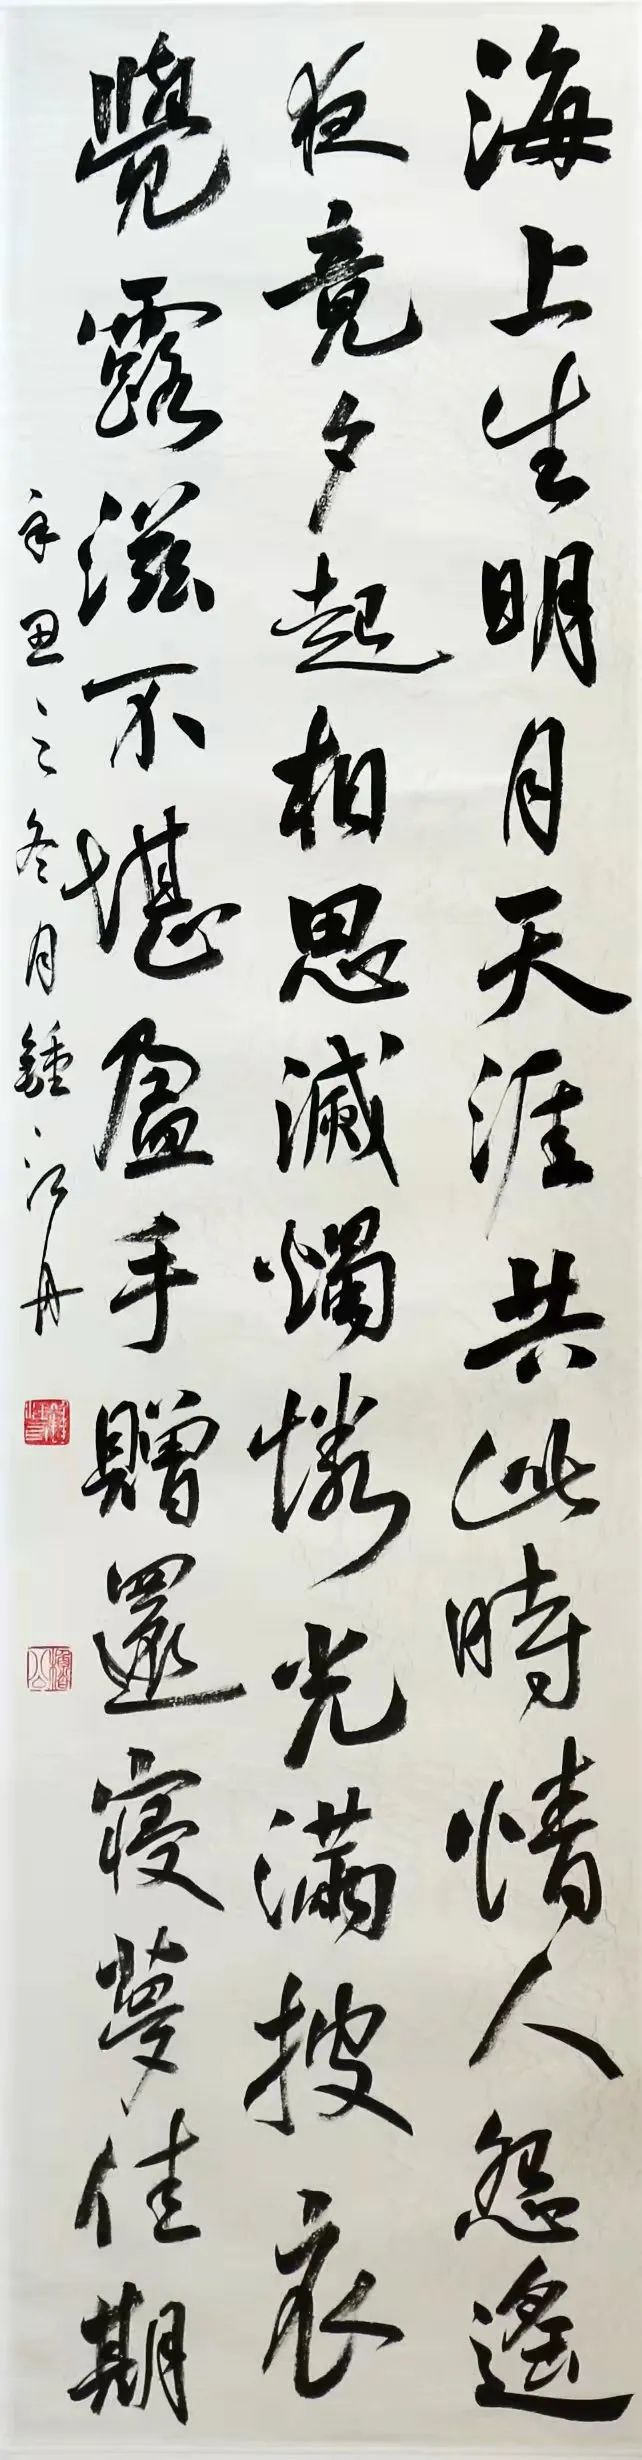 海上生明月天涯共此時情人怨遙
夜竟夕起相思滅燭憐光滿披衣
覺露滋不堪盈手贈還寢夢佳期
辛丑之冬月鍾江丹